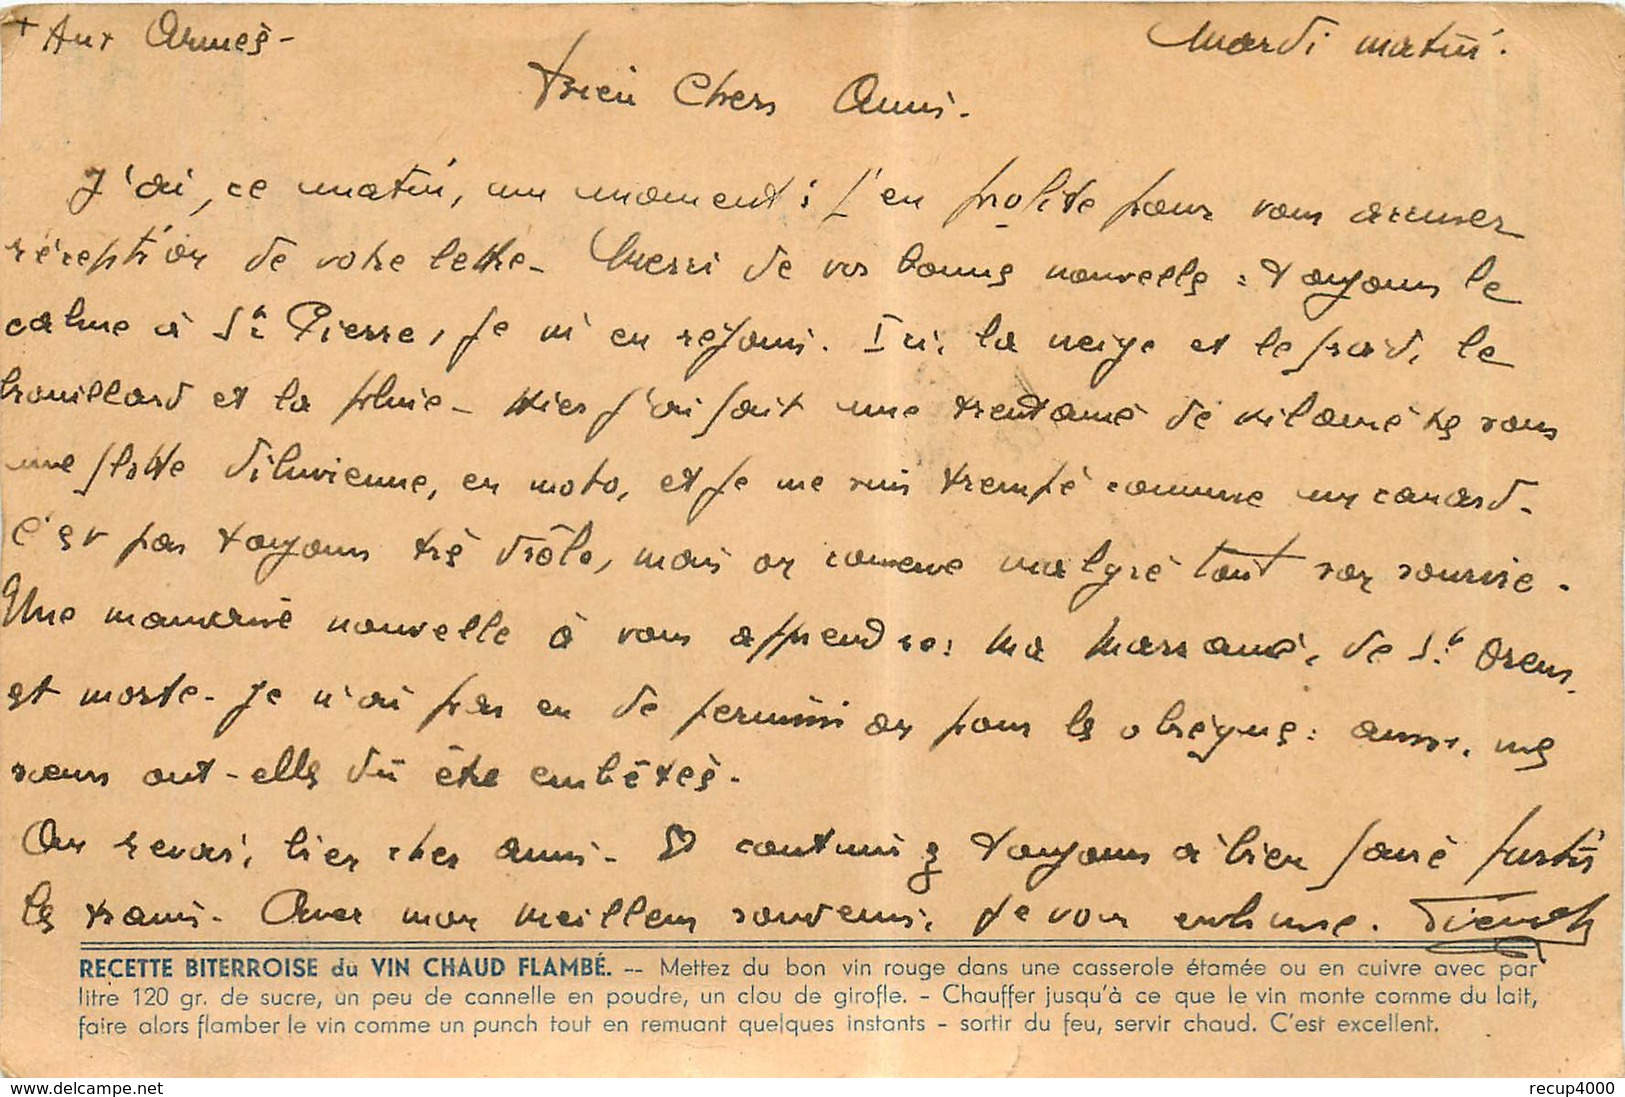 + Aux Armées -
Mardi matin.
Bien Chers Amis.
J'ai, ce matin, un moment : j'en profite pour vous accuser
réception de votre lettre - Merci de vos bonnes nouvelles : toujours le
calme à St Pierre, je m'en réjouis. Ici, la neige et le froid, le
brouillard et la pluie - Hier j'ai fait une trentaine de kilomètres sous
une flotte diluvienne, en moto, et je me suis trempé comme un canard -
C'est pas toujours très drôle, mais on conserve malgré tout son sourire -
Une mauvaise nouvelle à vous apprendre : ma marraine, de St Orens,
est morte - Je n'ai pas eu de permission pour les obsèques : aussi, mes
sœurs ont-elles dû être embêtées -
Au revoir, bien chers amis - Et continuez toujours à bien faire
les trains - Avec mon meilleur souvenir, je vous embrasse.
RECETTE BITERROISE du VIN CHAUD FLAMBÉ. -- Mettez du bon vin rouge dans une casserole étamée ou en cuivre avec par
litre 120 gr. de sucre, un peu de cannelle en poudre, un clou de girofle. - Chauffer jusqu'à ce que le vin monte comme du lait,
faire alors flamber le vin comme un punch tout en remuant quelques instants - sortir du feu, servir chaud. C'est excellent.
www.delcampe.net
recup4000